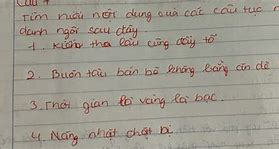 Câu 4
Tìm nước nội dung của các câu tục n
danh ngôn sau đây.
1. Kiến tha lâu cũng đầy tổ
2. Buôn tàu bán bè không bằng ăn dè
3. Thời gian là vàng là bạc.
4. Năng nhặt chặt bị.